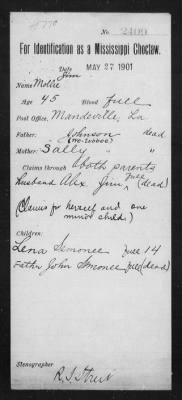 For Identification as a Mississippi Choctaw.
Date MAY 27 1901
Jim
Name Mollie
Age 45 Blood full
Post Office, Mandeville, La
Father: Johnson dead
Mother: Sally " "
Claims through both parents
Husband Alex. Jim, full (dead)
(Claims for herself and one
minor child)
Children:
Lena Simonee full 14
Father John Simonee full (dead)
Stenographer
R. S. Streit